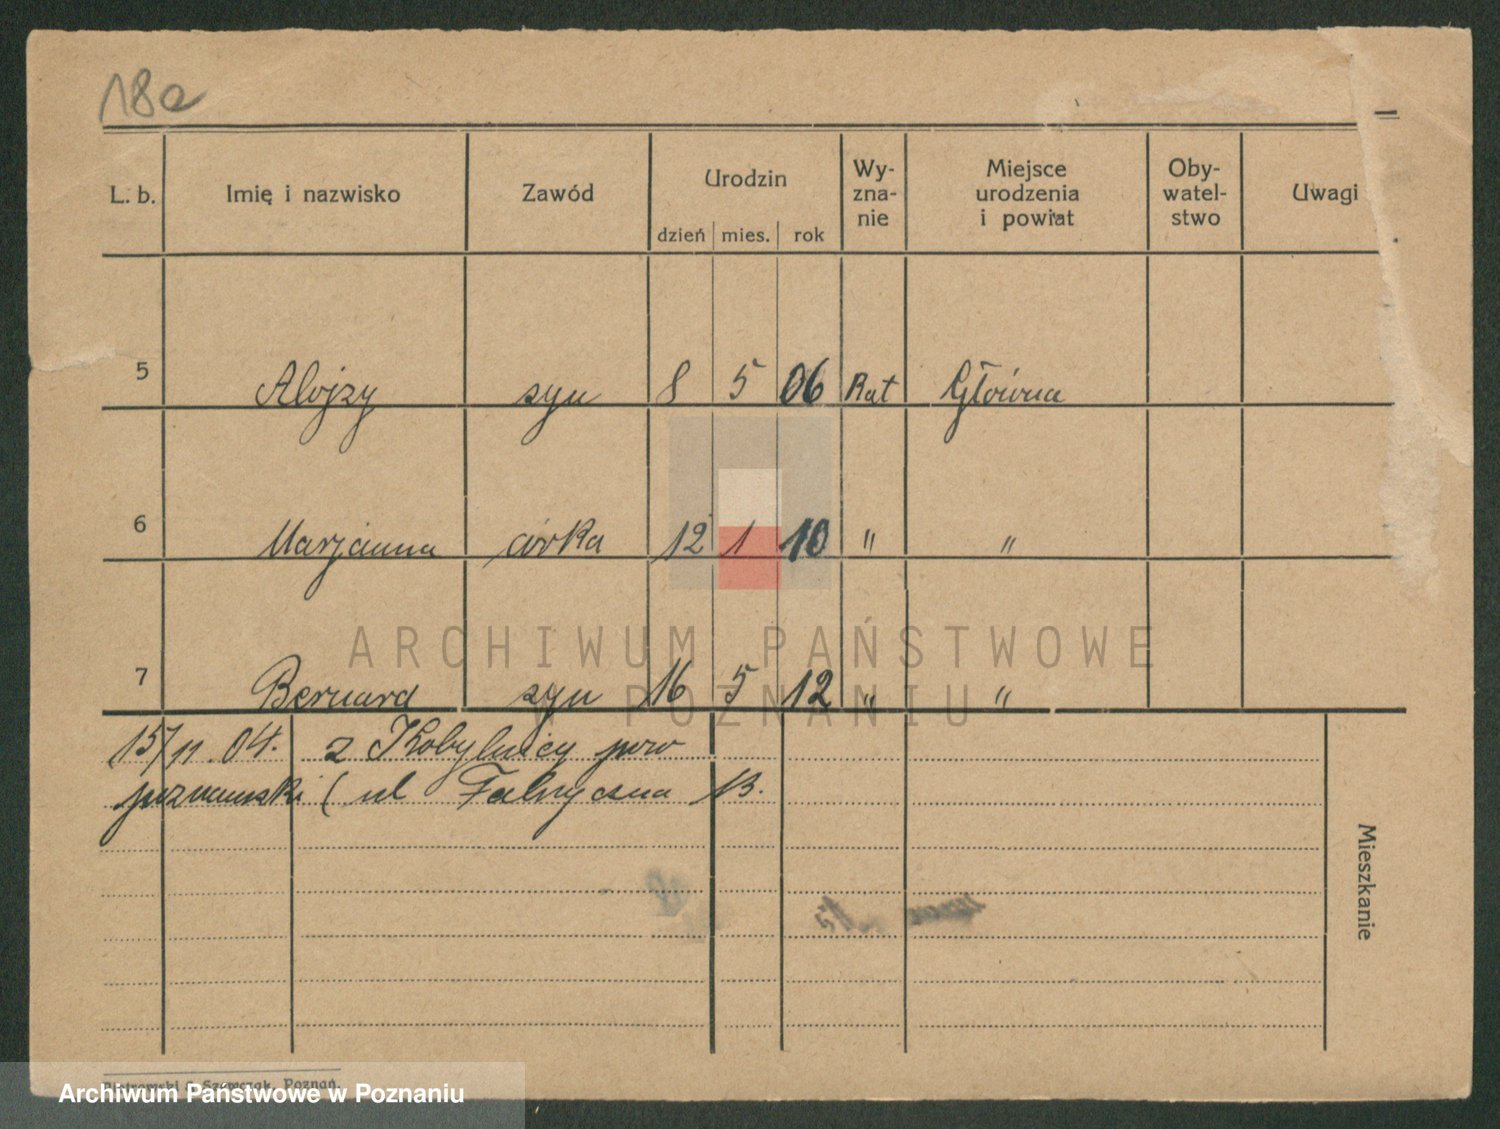 18a
L. b. Imię i nazwisko Zawód Urodzin Wy- zna- nie Miejsce urodzenia i powiat Oby- watel- stwo Uwagi
dzień mies. rok
5 Alojzy syn 8 5 06 Kat Główna
6 Marjanna córka 12 1 10 " "
7 Bernard syn 16 5 12 " "
15/11.04. z Kobylnicy pow
poznański ( ul Fabryczna 13.
Mieszkanie
Piotrowski i Szewczak, Poznań.
ARCHIWUM PAŃSTWOWE
W POZNANIU
Archiwum Państwowe w Poznaniu